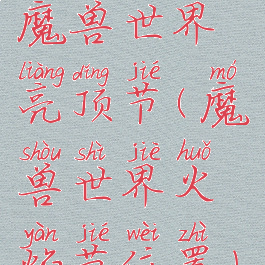 魔兽世界
liàng dǐng jié mó
亮顶节(魔
shòu shì jiè huǒ
兽世界火
yàn jié wèi zhì
焰节位置)